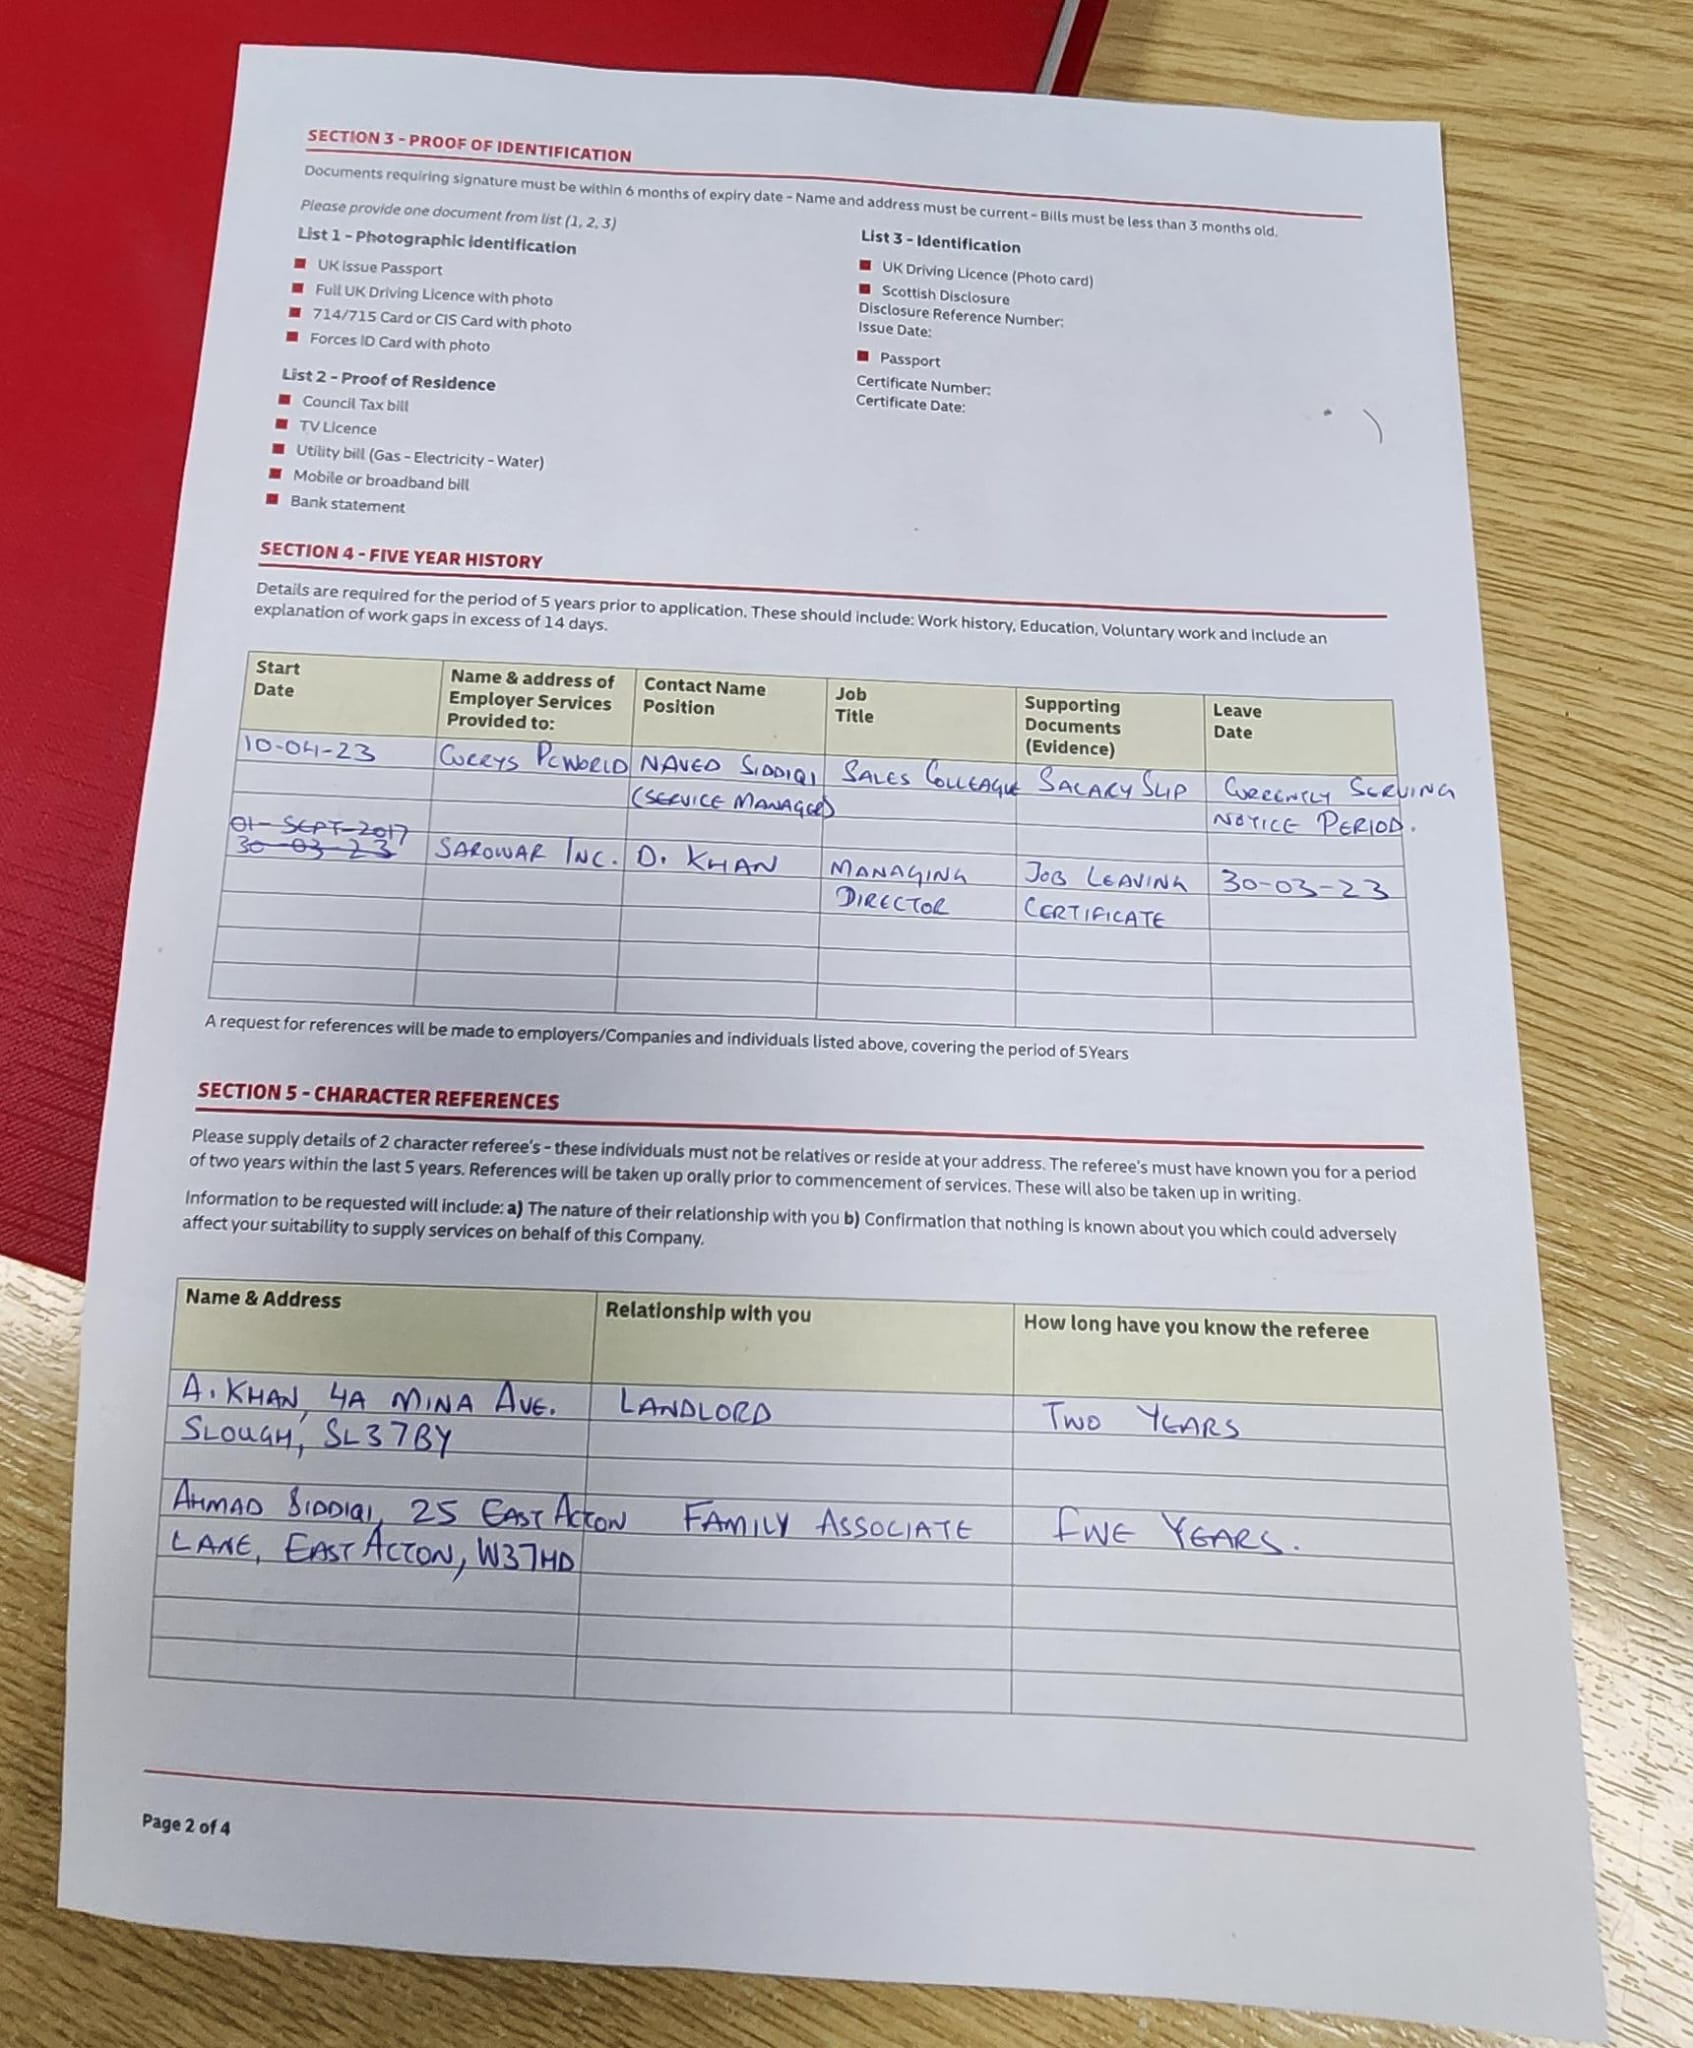 SECTION 3 - PROOF OF IDENTIFICATION
Documents requiring signature must be within 6 months of expiry date - Name and address must be current - Bills must be less than 3 months old.
Please provide one document from list (1, 2, 3)
List 1 - Photographic identification
UK issue Passport
Full UK Driving Licence with photo
714/715 Card or CIS Card with photo
Forces ID Card with photo
List 2 - Proof of Residence
Council Tax bill
TV Licence
Utility bill (Gas - Electricity - Water)
Mobile or broadband bill
Bank statement
List 3 - Identification
UK Driving Licence (Photo card)
Scottish Disclosure
Disclosure Reference Number:
Issue Date:
Passport
Certificate Number:
Certificate Date:
SECTION 4 - FIVE YEAR HISTORY
Details are required for the period of 5 years prior to application. These should include: Work history, Education, Voluntary work and include an
explanation of work gaps in excess of 14 days.
Start Date
Name & address of Employer Services Provided to:
Contact Name Position
Job Title
Supporting Documents (Evidence)
Leave Date
10-04-23 CURRYS PCWORLD NAVED SIDDIQI SALES COLLEAGUE SALARY SLIP CURRENTLY SERVING
(SERVICE MANAGER) NOTICE PERIOD.
01-SEPT-2017
30-03-23 SAROWAR INC. D. KHAN MANAGING JOB LEAVING 30-03-23
DIRECTOR CERTIFICATE
A request for references will be made to employers/Companies and individuals listed above, covering the period of 5Years
SECTION 5 - CHARACTER REFERENCES
Please supply details of 2 character referee's - these individuals must not be relatives or reside at your address. The referee's must have known you for a period
of two years within the last 5 years. References will be taken up orally prior to commencement of services. These will also be taken up in writing.
Information to be requested will include: a) The nature of their relationship with you b) Confirmation that nothing is known about you which could adversely
affect your suitability to supply services on behalf of this Company.
Name & Address Relationship with you How long have you know the referee
A. KHAN, 4A MINA AVE. LANDLORD TWO YEARS
SLOUGH, SL37BY
AHMAD SIDDIQI, 25 EAST ACTON FAMILY ASSOCIATE FIVE YEARS.
LANE, EAST ACTON, W37HD
Page 2 of 4